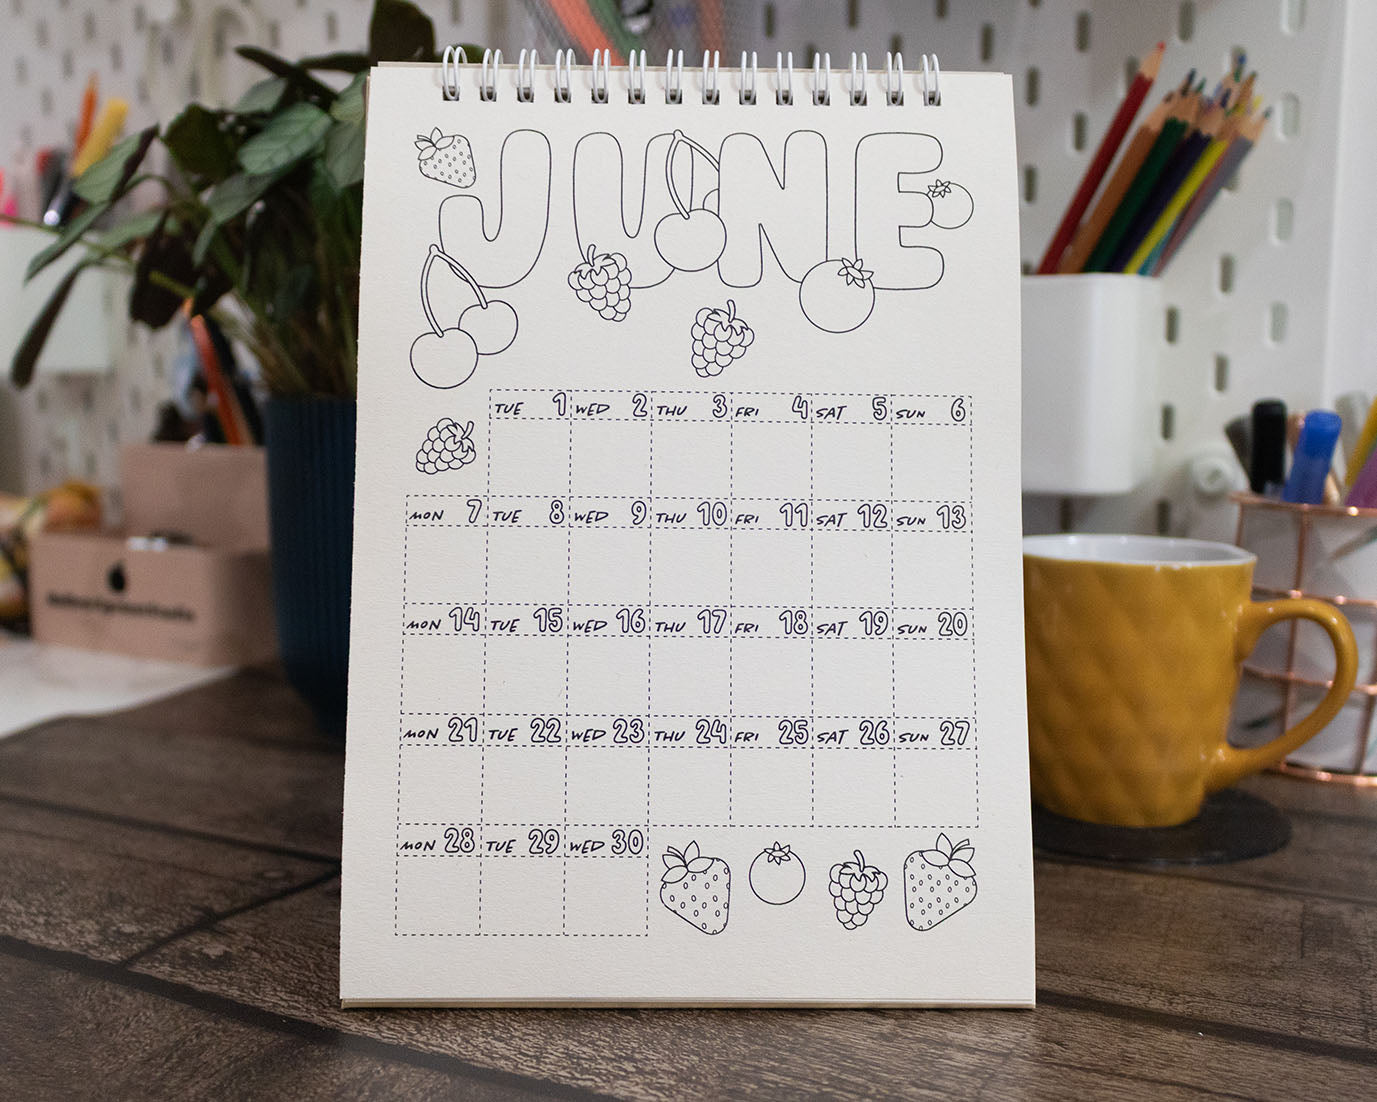 JUNE
TUE 1 WED 2 THU 3 FRI 4 SAT 5 SUN 6
MON 7 TUE 8 WED 9 THU 10 FRI 11 SAT 12 SUN 13
MON 14 TUE 15 WED 16 THU 17 FRI 18 SAT 19 SUN 20
MON 21 TUE 22 WED 23 THU 24 FRI 25 SAT 26 SUN 27
MON 28 TUE 29 WED 30